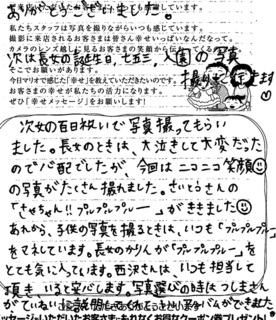 ありがとうございました。
私たちスタッフは写真を撮りながらいつも感じています。
撮影に来店されるお客さまは皆さん幸せいっぱいなんだなって。
カメラのレンズ越しに見るお客さまの笑顔から伝わってくる
次は長女の誕生日、七五三、入園の写真
そこでお願いがあります。
撮りに行きます♡
今日マリオで感じた「幸せ」を教えていただきたいのです。
お客さまの幸せが私たちの活力になります。
ぜひ「幸せメッセージ」をお願いします!
次女の百日祝いで写真撮ってもらい
ました。長女のときは、大泣きして大変だった
ので心配でしたが、今回はニコニコ笑顔☺
の写真がたくさん撮れました。さいとうさんの
「さきちゃん!!プルプルプルー」がききました☺
あれから、子供の写真を撮るときは、いつも「プルプルプルー」
をマネしています。長女のかりんが「プルプルプルー」を
とても気に入っています。西沢さんは、いつも担当して
頂き、いつも安心します。写真選びの時はつしませんが
ていねいに説明してくれて アルバムができました
ッセージいただいたお客さまにもれなくお得なクーポン券プレゼント!